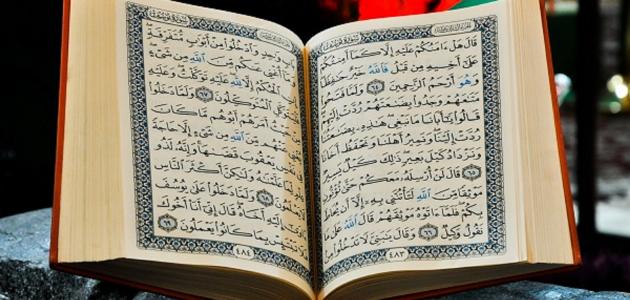 سورة يوسف
قَالَ هَلْ ءَامَنُكُمْ عَلَيْهِ إِلَّا كَمَآ أَمِنتُكُمْ
عَلَىٰٓ أَخِيهِ مِن قَبْلُ فَٱللَّهُ خَيْرٌ حَٰفِظًا
وَهُوَ أَرْحَمُ ٱلرَّٰحِمِينَ ٦٤ وَلَمَّا فَتَحُوا۟
مَتَٰعَهُمْ وَجَدُوا۟ بِضَٰعَتَهُمْ رُدَّتْ إِلَيْهِمْ
قَالُوا۟ يَٰٓأَبَانَا مَا نَبْغِى هَٰذِهِۦ بِضَٰعَتُنَا
رُدَّتْ إِلَيْنَا وَنَمِيرُ أَهْلَنَا وَنَحْفَظُ أَخَانَا
وَنَزْدَادُ كَيْلَ بَعِيرٍ ذَٰلِكَ كَيْلٌ يَسِيرٌ
٦٥ قَالَ لَنْ أُرْسِلَهُۥ مَعَكُمْ حَتَّىٰ تُؤْتُونِ
مَوْثِقًا مِّنَ ٱللَّهِ لَتَأْتُنَّنِى بِهِۦٓ إِلَّآ أَن يُحَاطَ
بِكُمْ فَلَمَّآ ءَاتَوْهُ مَوْثِقَهُمْ قَالَ ٱللَّهُ عَلَىٰ مَا
نَقُولُ وَكِيلٌ ٦٦ وَقَالَ يَٰبَنِىَّ لَا تَدْخُلُوا۟ مِنۢ
٤٨٣
سورة يوسف
بَابٍ وَٰحِدٍ وَٱدْخُلُوا۟ مِنْ أَبْوَٰبٍ مُّتَفَرِّقَةٍ
وَمَآ أُغْنِى عَنكُم مِّنَ ٱللَّهِ مِن شَىْءٍ إِنِ
ٱلْحُكْمُ إِلَّا لِلَّهِ عَلَيْهِ تَوَكَّلْتُ وَعَلَيْهِ
فَلْيَتَوَكَّلِ ٱلْمُتَوَكِّلُونَ ٦٧ وَلَمَّا دَخَلُوا۟
مِنْ حَيْثُ أَمَرَهُمْ أَبُوهُم مَّا كَانَ
يُغْنِى عَنْهُم مِّنَ ٱللَّهِ مِن شَىْءٍ إِلَّا حَاجَةً
فِى نَفْسِ يَعْقُوبَ قَضَىٰهَا وَإِنَّهُۥ لَذُو
عِلْمٍ لِّمَا عَلَّمْنَٰهُ وَلَٰكِنَّ أَكْثَرَ ٱلنَّاسِ
لَا يَعْلَمُونَ ٦٨ وَلَمَّا دَخَلُوا۟ عَلَىٰ يُوسُفَ
ءَاوَىٰٓ إِلَيْهِ أَخَاهُ قَالَ إِنِّىٓ أَنَا۠ أَخُوكَ
فَلَا تَبْتَئِسْ بِمَا كَانُوا۟ يَعْمَلُونَ ٦٩
٤٨٤